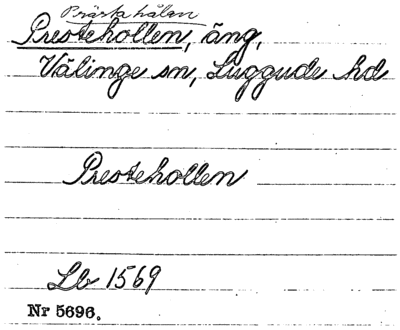 Prästahålan
Prestehollen, äng,
Välinge sn, Luggude hd
Prestehollen
Lb 1569
Nr 5696.